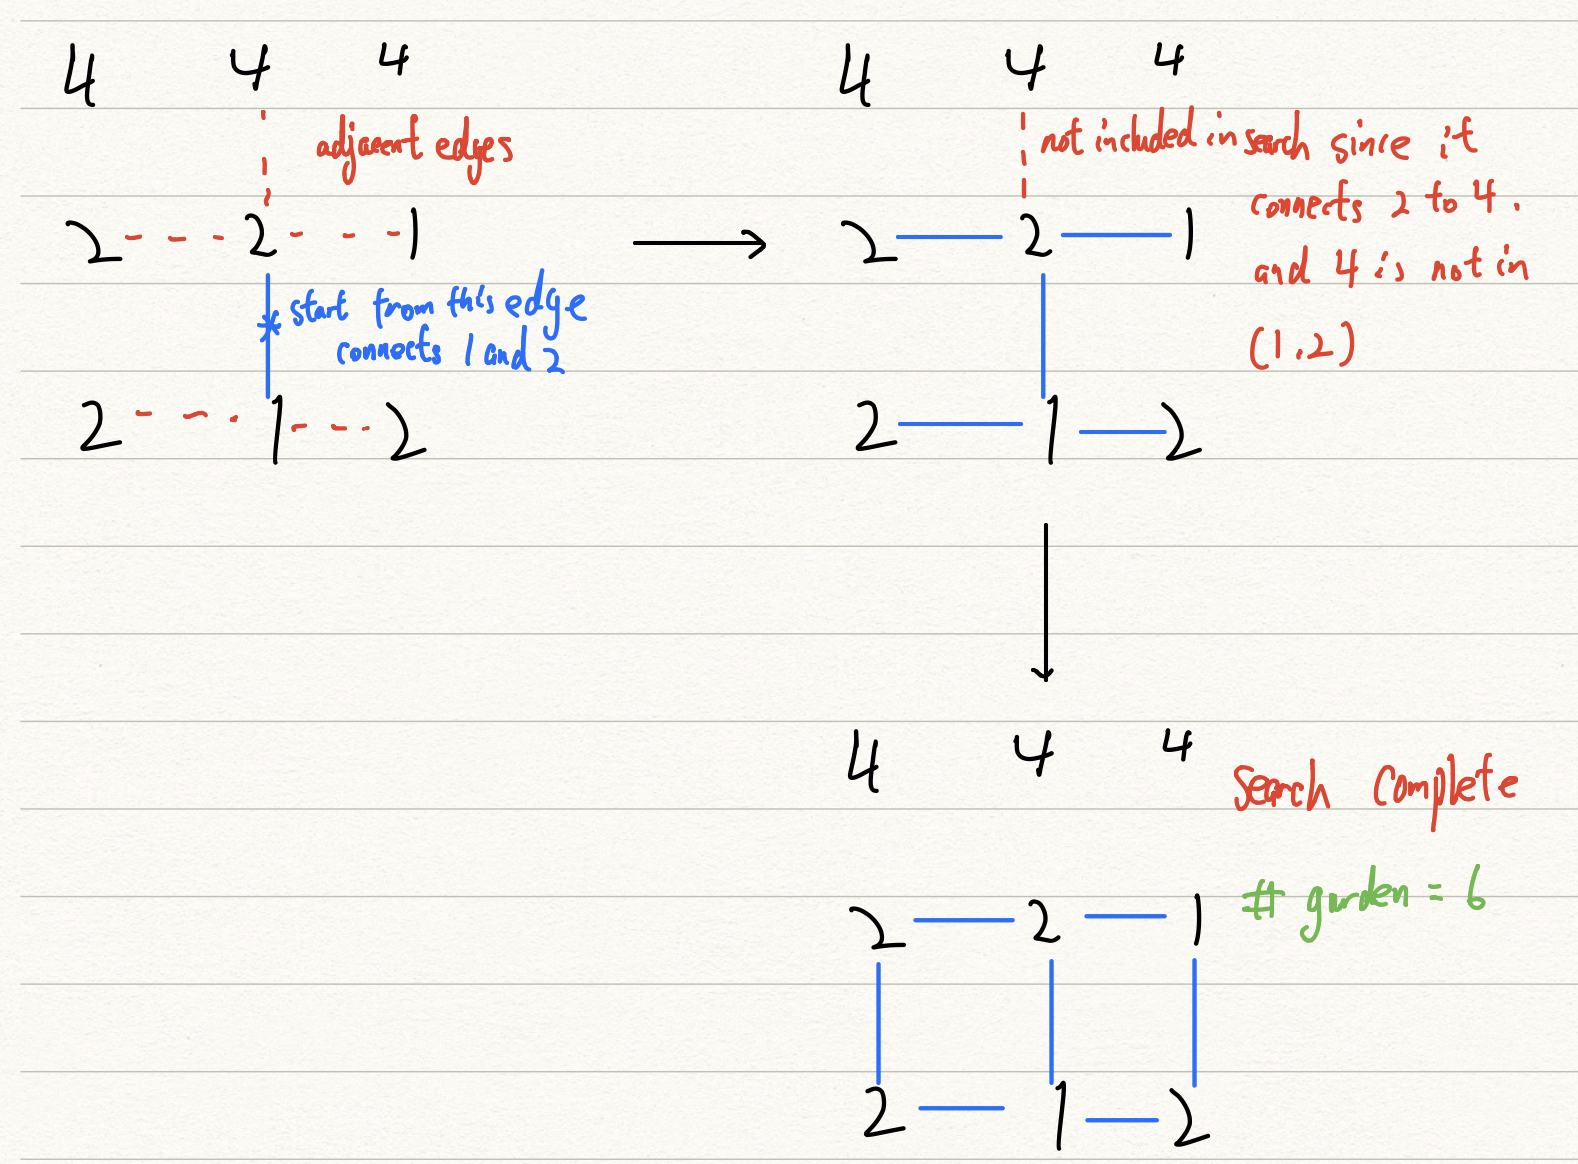 4 4 4
adjacent edges
2 2 1
start from this edge
connects 1 and 2
2 1 2
4 4 4
not included in search since it
connects 2 to 4.
2 2 1
and 4 is not in
(1,2)
2 1 2
4 4 4
Search Complete
# garden = 6
2 2 1
2 1 2